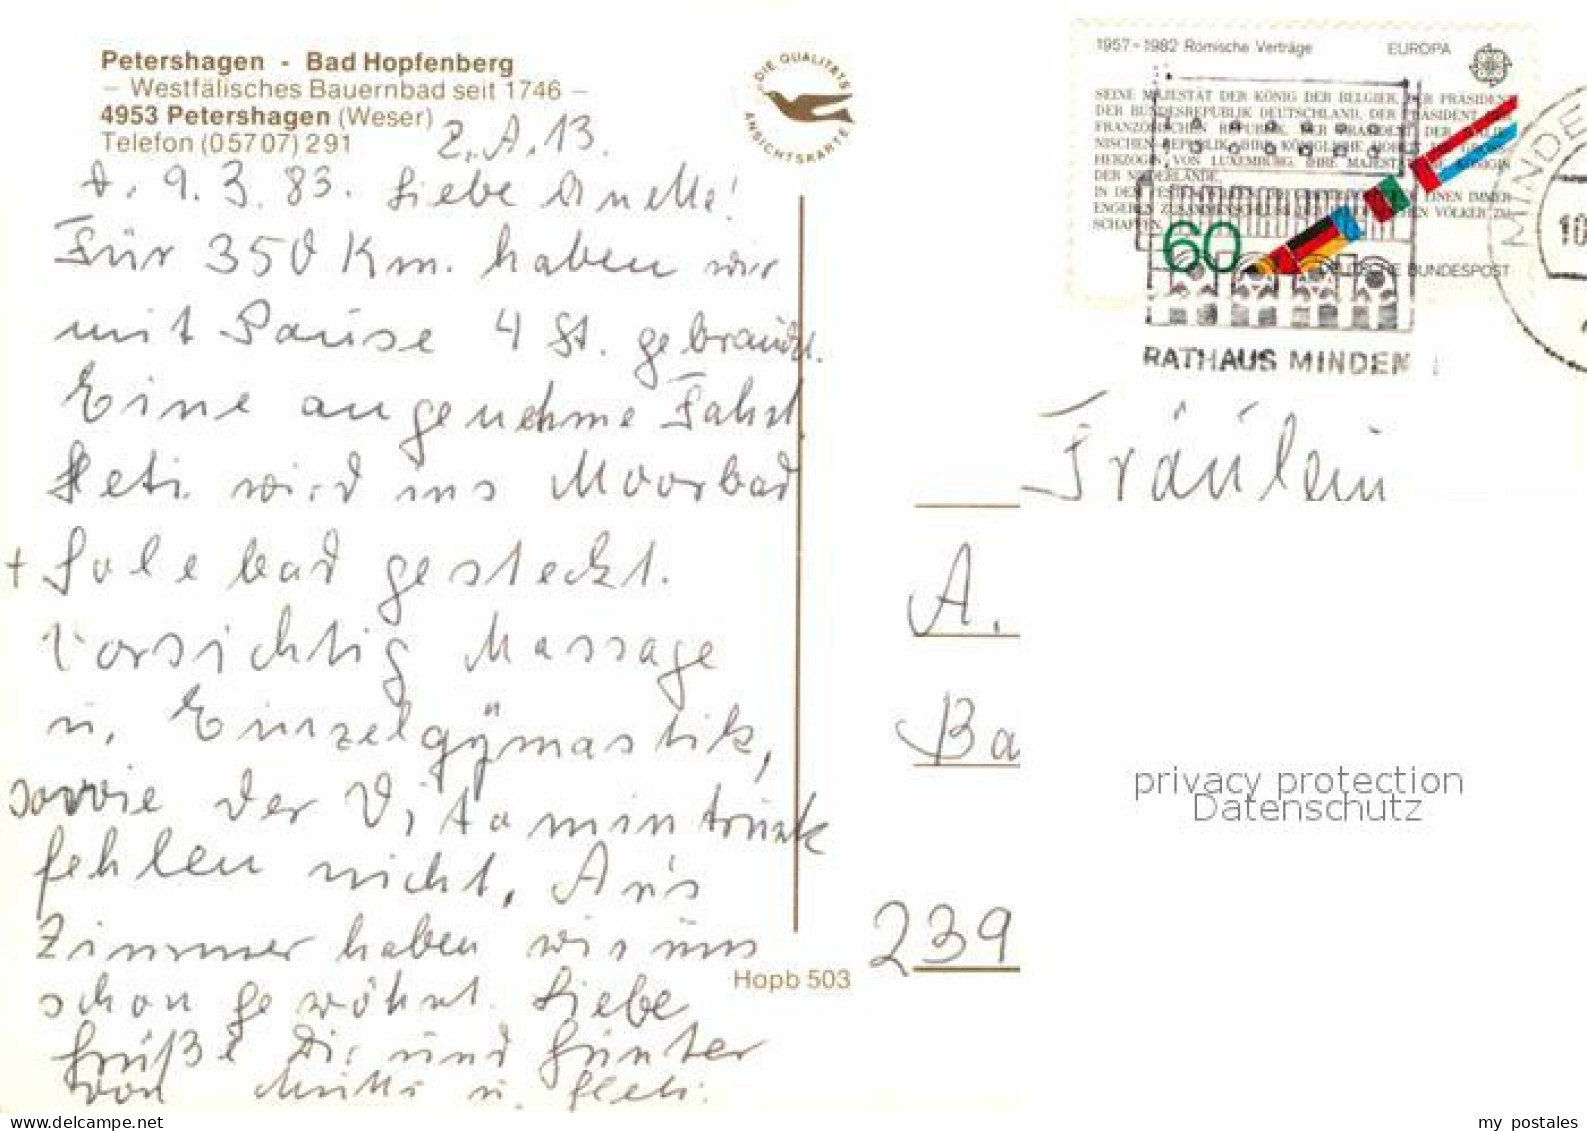 Petershagen - Bad Hopfenberg
– Westfälisches Bauernbad seit 1746 –
4953 Petershagen (Weser)
Telefon (05707) 291
Z. A. 13.
d. 9. 3. 83. Liebe Anette!
Für 350 Km. haben wir
mit Pause 4 St. gebraucht.
Eine angenehme Fahrt.
Heti wird ins Moorbad
+ Sole bad gesteckt.
Vorsichtig Massage
u. Einzelgymastik,
sowie der Vitamintrunk
fehlen nicht. An's
Zimmer haben wir uns
schon gewöhnt. Liebe
Grüße Dir und Günter
von Mutti u. Heti.
DIE QUALITÄTS
ANSICHTSKARTE
Hopb 503
1957-1982 Römische Verträge EUROPA
SEINE MAJESTÄT DER KÖNIG DER BELGIER, DER PRÄSIDENT
DER BUNDESREPUBLIK DEUTSCHLAND, DER PRÄSIDENT DER
FRANZÖSISCHEN REPUBLIK, DER PRÄSIDENT DER ITALIE-
NISCHEN REPUBLIK, IHRE KÖNIGLICHE HOHEIT
HERZOGIN VON LUXEMBURG, IHRE MAJESTÄT DIE KÖNIGIN
DER NIEDERLANDE,
IN DEM FESTEN EINEN IMMER
ENGEREN ZUSAMMENSCHLUSS VÖLKER ZU
SCHAFFEN
60
DEUTSCHE BUNDESPOST
MINDE
10
RATHAUS MINDEN
Fräulein
A.
Ba
239
privacy protection
Datenschutz
www.delcampe.net
my postales